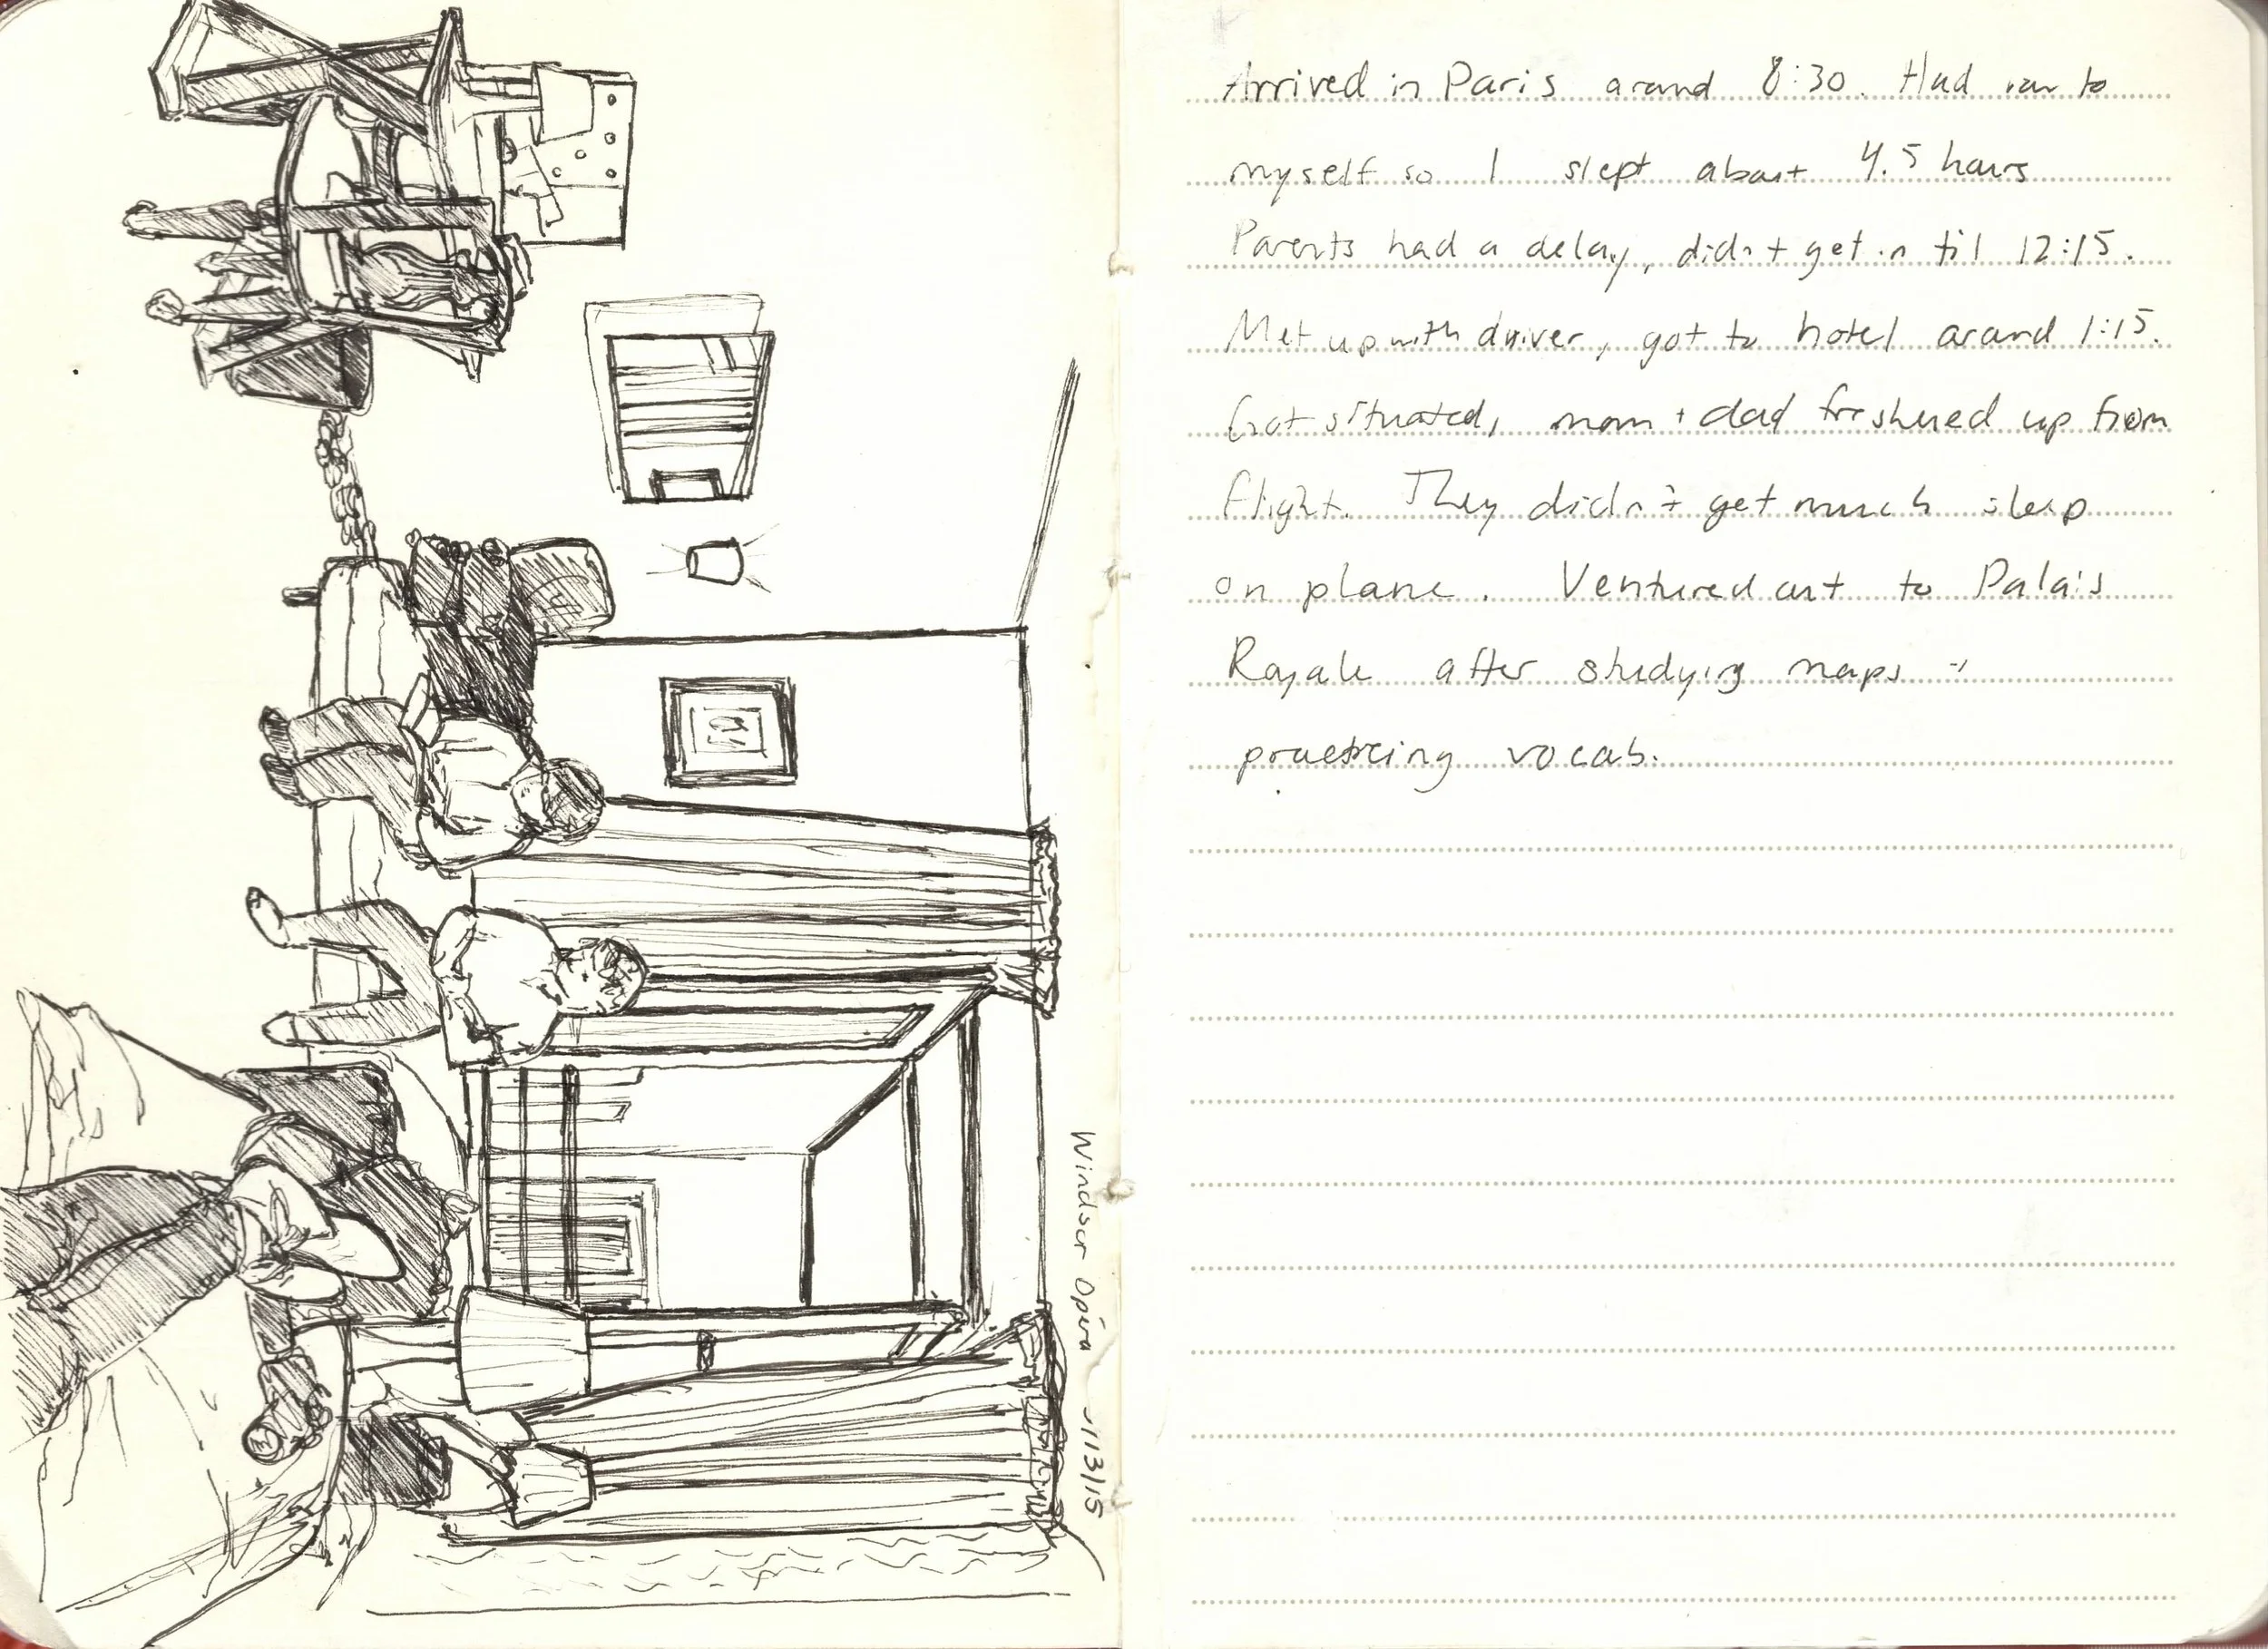 Arrived in Paris around 8:30. Had row to
myself so I slept about 4.5 hours
Parents had a delay, didn't get in til 12:15.
Met up with driver, got to hotel around 1:15.
Got situated, mom + dad freshened up from
flight. They didn't get much sleep
on plane. Ventured out to Palais
Royale after studying maps +
practicing vocab.
Windsor Opéra 3/13/15